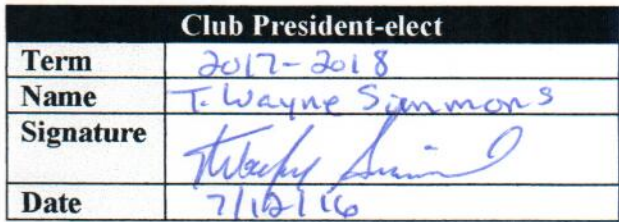 Club President-elect
Term 2017-2018
Name T. Wayne Simmons
Signature
Date 7/12/16